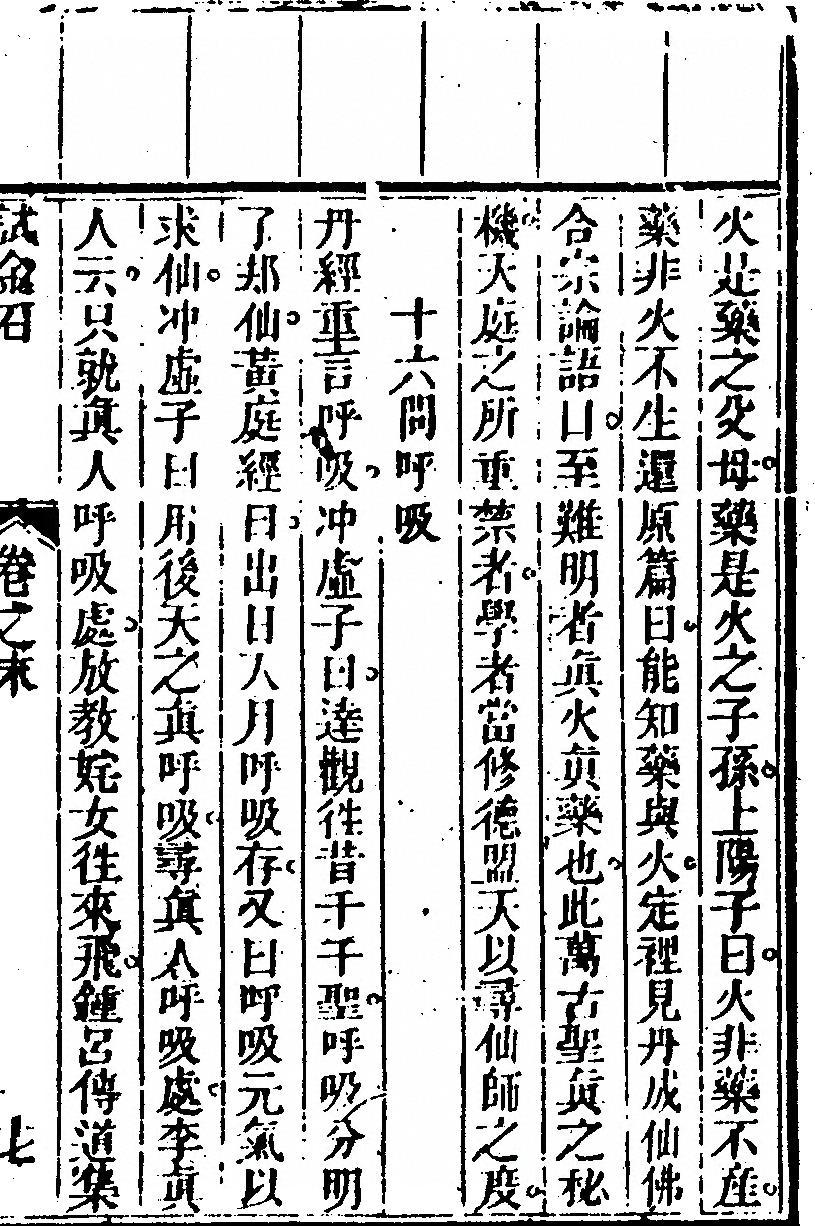 火是藥之父母。藥是火之子孫。上陽子曰。火非藥不產。
藥非火不生還原篇曰。能知藥與火。定裡見丹成仙佛
合宗論語曰。至難明者眞火眞藥也。此萬古聖眞之秘
機。天庭之所重禁者。學者當修德盟天以尋仙師之度。
十六問呼吸
丹經重言呼吸。冲虛子曰。達觀徃昔千千聖。呼吸分明
了却仙。黃庭經曰。出日入月呼吸存。又曰呼吸元氣以
求仙。冲虛子曰用後天之眞呼吸。尋眞人呼吸處。李眞
人云。只就眞人呼吸處。放教姹女徃來飛。鍾呂傳道集
試金石 卷之末 七